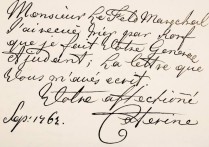 Monsieur le Feld Marechal
J'ai recue hier par
que je fait votre General
Adjudant; la lettre que
Vous m'aves ecrit
Votre affectionné
Sep: 1762. Caterine